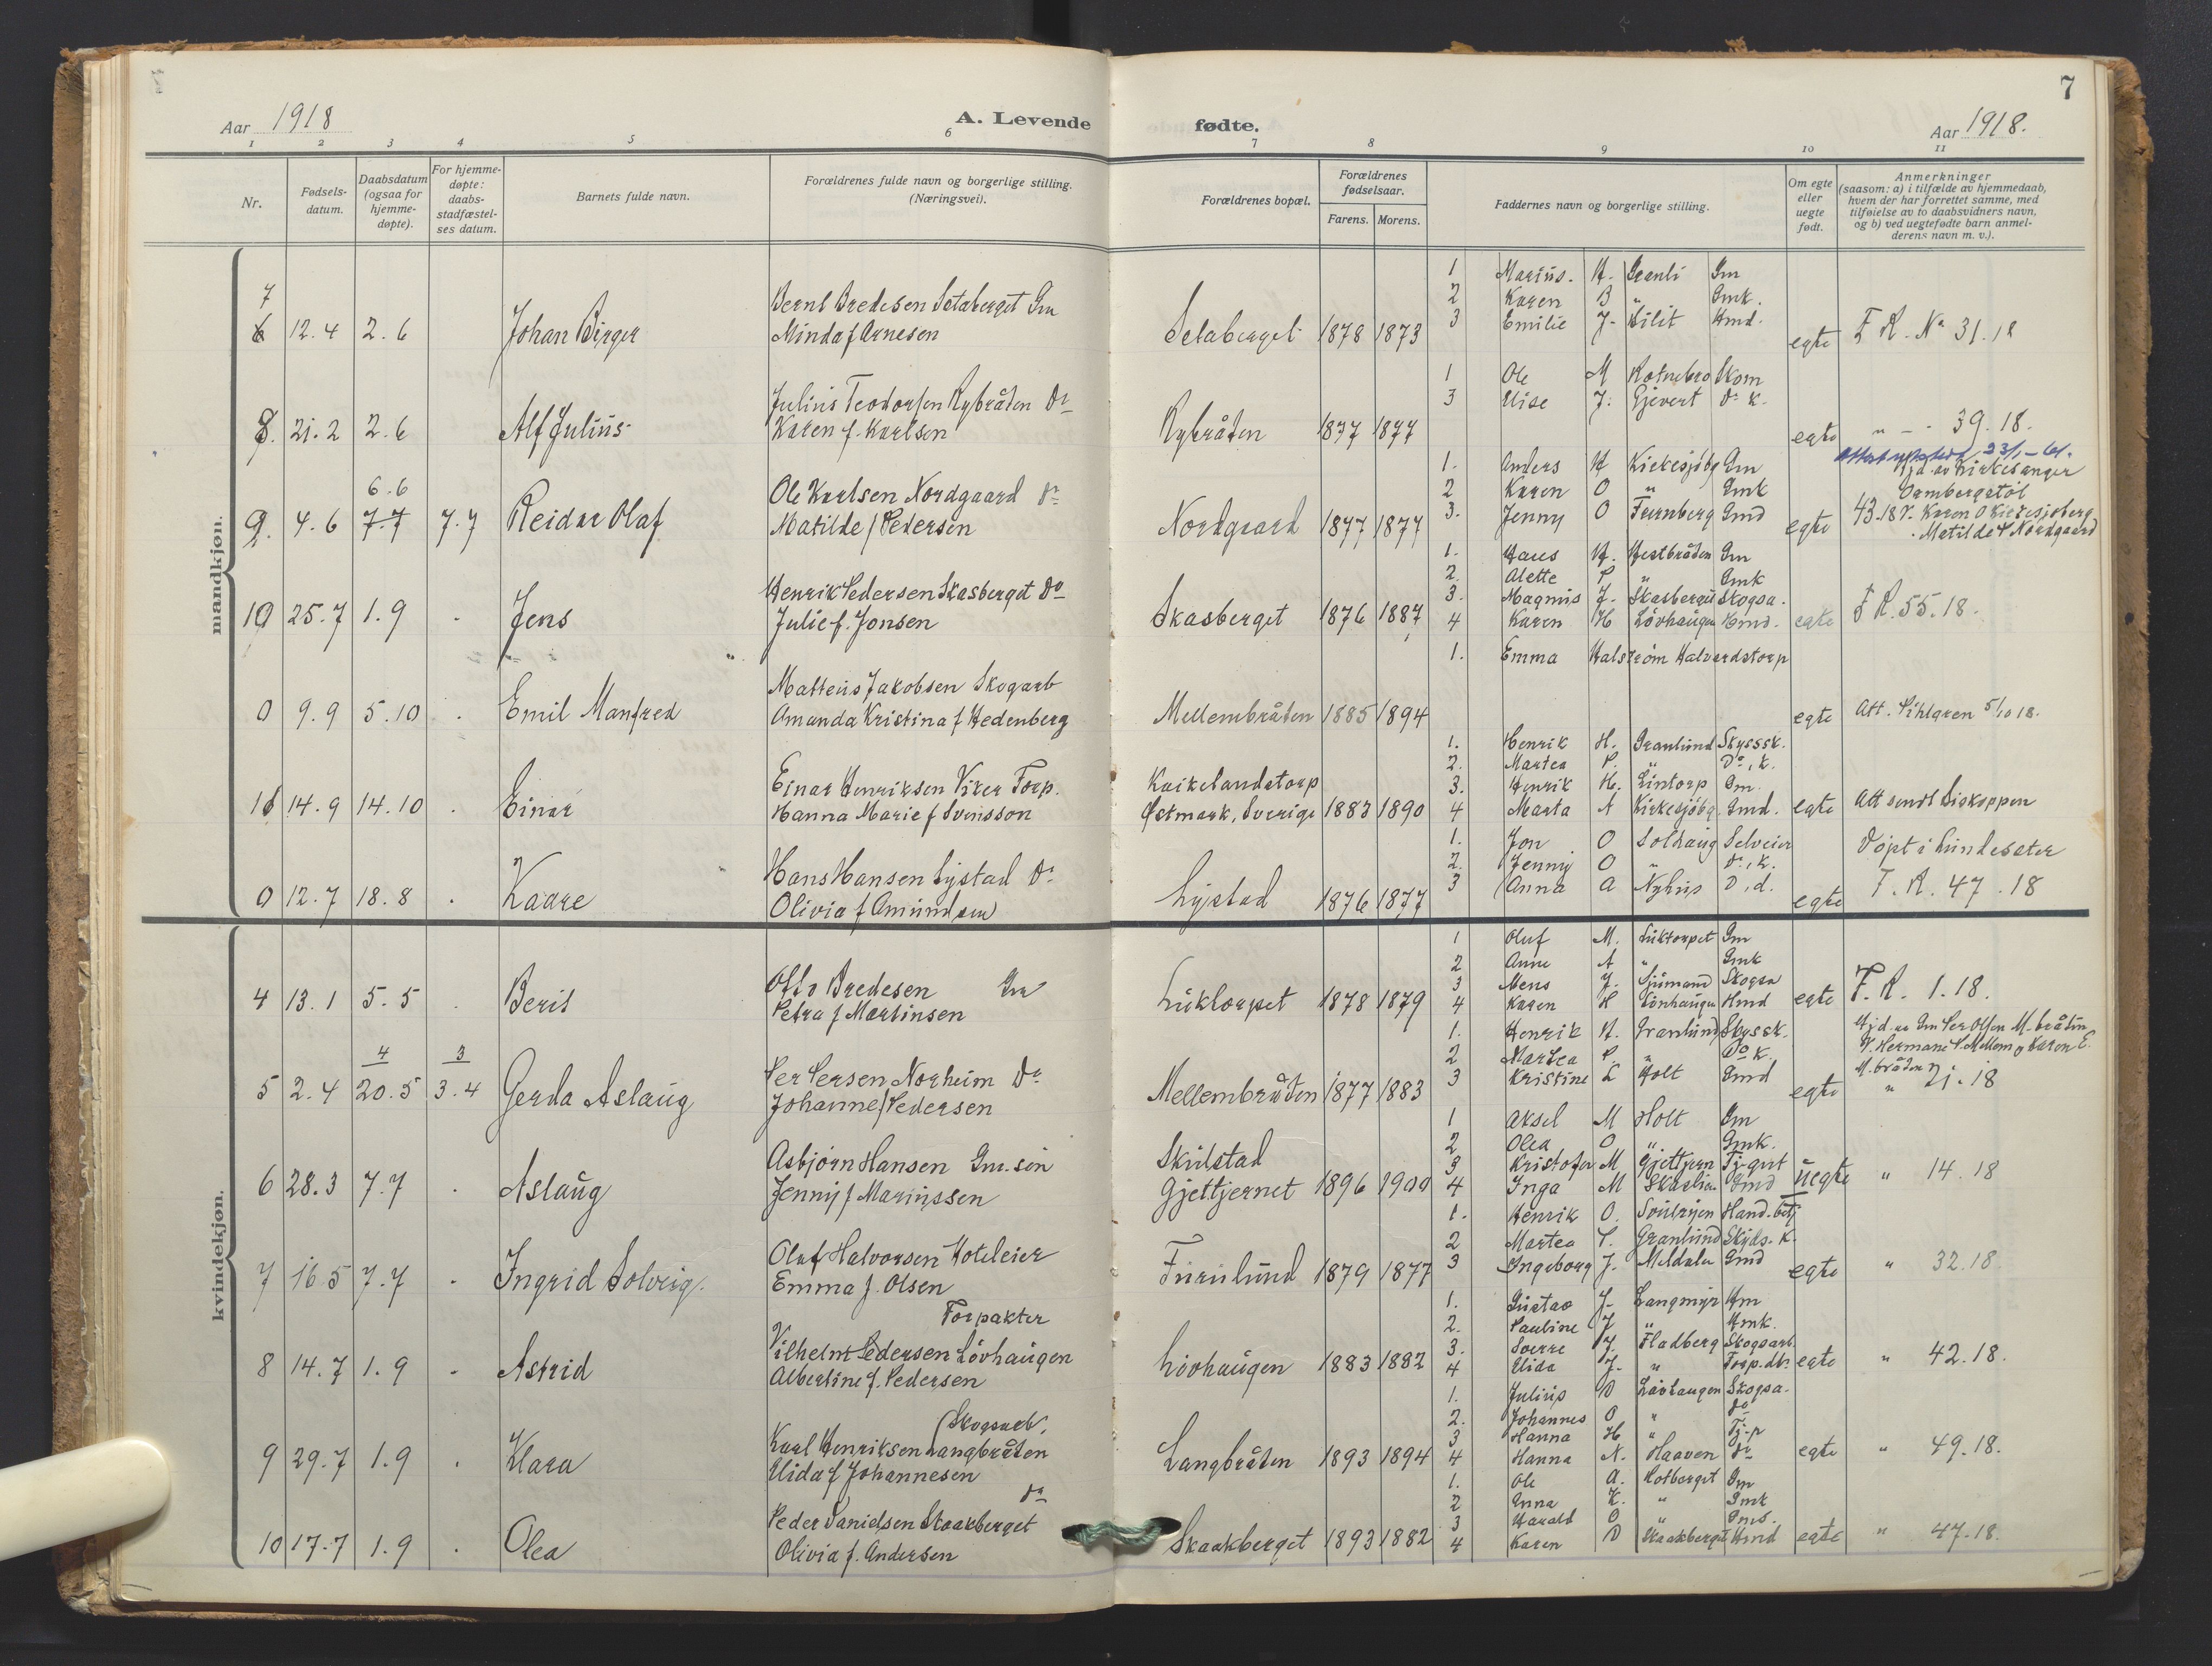 7
Aar 1918
A. Levende fødte.
Aar 1918.
1 2 3 4 5 6 7 8 9 10 11
Nr.
Fødsels-datum.
Daabsdatum (ogsaa for hjemme-døpte).
For hjemme-døpte: daabs-stadfæstel-ses datum.
Barnets fulde navn.
Forældrenes fulde navn og borgerlige stilling. (Næringsvei).
Forældrenes bopæl.
Forældrenes fødselsaar.
Farens. Morens.
Faddernes navn og borgerlige stilling.
Om egte eller uegte født.
Anmerkninger (saasom: a) i tilfælde av hjemmedaab, hvem der har forrettet samme, med tilføielse av to daabsvidners navn, og b) ved uegtefødte barn anmel-derens navn m. v.).
mandkjøn.
7
6 12.4 2.6 Johan Birger
Bernt Bredesen Setaberget Gm
Minda f Arnesen
Setaberget 1878 1873
1 Marius. H. Granli Gm
2 Karen B " Gmk.
3 Emilie J. Hmd.
egte F R. No 31.18
8. 21.2 2.6 Alf Julius
Julius Teodorsen Rybråten Do
Karen f. Karlsen
Rybråten 1877 1877
1 Ole M
3 J. Gjevert Do k.
egte " - 39.18.
23/1-61.
9. 4.6 6.6 7.7 7.7 Reidar Olaf
Ole Karlsen Nordgaard Do
Matilde f Pedersen
Nordgaard 1877 1877
1. Anders H Kirkesjøbg Gm
2 Karen O " Gmk
3. Jenny O Furnberg Gmd
egte
Hjd. av Kirkesanger
43.18 V. Karen O Kirkesjøberg
Matilde P Nordgaard
10 25.7 1.9 . Jens
Henrik Pedersen Skasberget Do
Julie f. Jonsen
Skasberget 1876 1887
1. Hans H. Hestbråten Gm
2. Alette P " Gmk
3. Magnus J. Skasberget Skogsa.
4 Karen H Løvhaugen Hmd.
egte F R. 55.18.
0 9.9 5.10 . Emil Manfred
Matteus Jakobsen Skogarb
Amanda Kristina f Hedenberg
Mellembråten 1885 1894
1. Emma Halström Halvardstorp
egte Att. Pihlgren 5/10 18.
11 14.9 14.10 . Einar
Einar Henriksen Viker Forp.
Hanna Marie f Svensson
Kaikelandstorp
Østmark, Sverige 1883 1890
1. Henrik H. Granlund Skyssk.
2. Martea P. " Do, k.
3. Henrik H. Lintorp Gm.
4 Marta A Kirkesjøbg. Gmd.
egte Att sendt Biskoppen
0 12.7 18.8 . Kaare
Hans Hansen Lystad Do
Olivia f Amundsen
Lystad 1876 1877
1. Jon O Solhaug Selveier
2. Jenny O " Do, k.
3 Anna A Nyhus D, d.
egte
Døpt i Lundesæter
F. R. 47.18
kvindekjøn.
4 13.1 5.5 . Berit
Otto Bredesen Gm
Petra f Martinsen
Luktorpet 1878 1879
1 Oluf M. Luktorpet Gm
2 Anne A " Gmk
3 Mens J. Skogsa
4 Karen H Løvhaugen Hmd
egte F. R. 1.18.
5 2.4 4 20.5 3 3.4 Gerda Aslaug
Per Persen Norheim Do
Johanne f Pedersen
Mellembråten 1877 1883
1. Henrik H. Granlund Skyssk.
2 Martea P. " Do k.
3 Kristine L Holt Gmd
egte
Hjd. av Gm Per Olsen M. bråten
V. Hermane P. Mellem og Karen E.
M. bråten
" 21.18
6 28.3 7.7 . Aslaug
Asbjørn Hansen Gm. søn
Jenny f Mariussen
Skulstad
Gjettjernet 1896 1900
1 Aksel M Holt Gm
2 Olea O " Gmk.
3 Kristofer M Gjettjern Tj.gut
4 Inga M Skaslien Gmd
uegte " 14.18
7 16.5 7.7 . Ingrid Solveig.
Oluf Halvorsen Hoteleier
Emma f. Olsen
Furulund 1879 1877
1. Henrik O. Hand.betj
2 Martea P. Granlund Skyds.k.
3 Ingeborg J. Meldalen Gmd
egte " 32.18.
8 14.7 1.9 . Astrid
Forpakter
Vilhelm Pedersen Løvhaugen
Albertine f. Pedersen
Løvhaugen 1883 1882
1. Gustav J. Langmyr Hm
2. Pauline J " Hmk.
3. Sverre J. Fladberg Skogsarb.
4 J. " Forp.dtr.
egte " 42.18.
9 29.7 1.9 . Klara
Skogsarb.
Karl Henriksen Langbråten
f Johannesen
Langbråten 1893 1894
1. Julius D Løvhaugen Skogsa.
2. Johannes O " Do
3 Hanna H " Tj.p
4 Hanna N. Haaven Do
egte " 49.18.
10 17.7 1.9 . Olea
Do
Peder Danielsen Skaakberget
Olivia f. Andersen
Skaakberget 1893 1882
1. Ole A. Rotberget Gm
2 Anna K. " Gmk
3 Harald O " Gms.
4 Karen D Skaakberget Hmd
egte " 47.18.